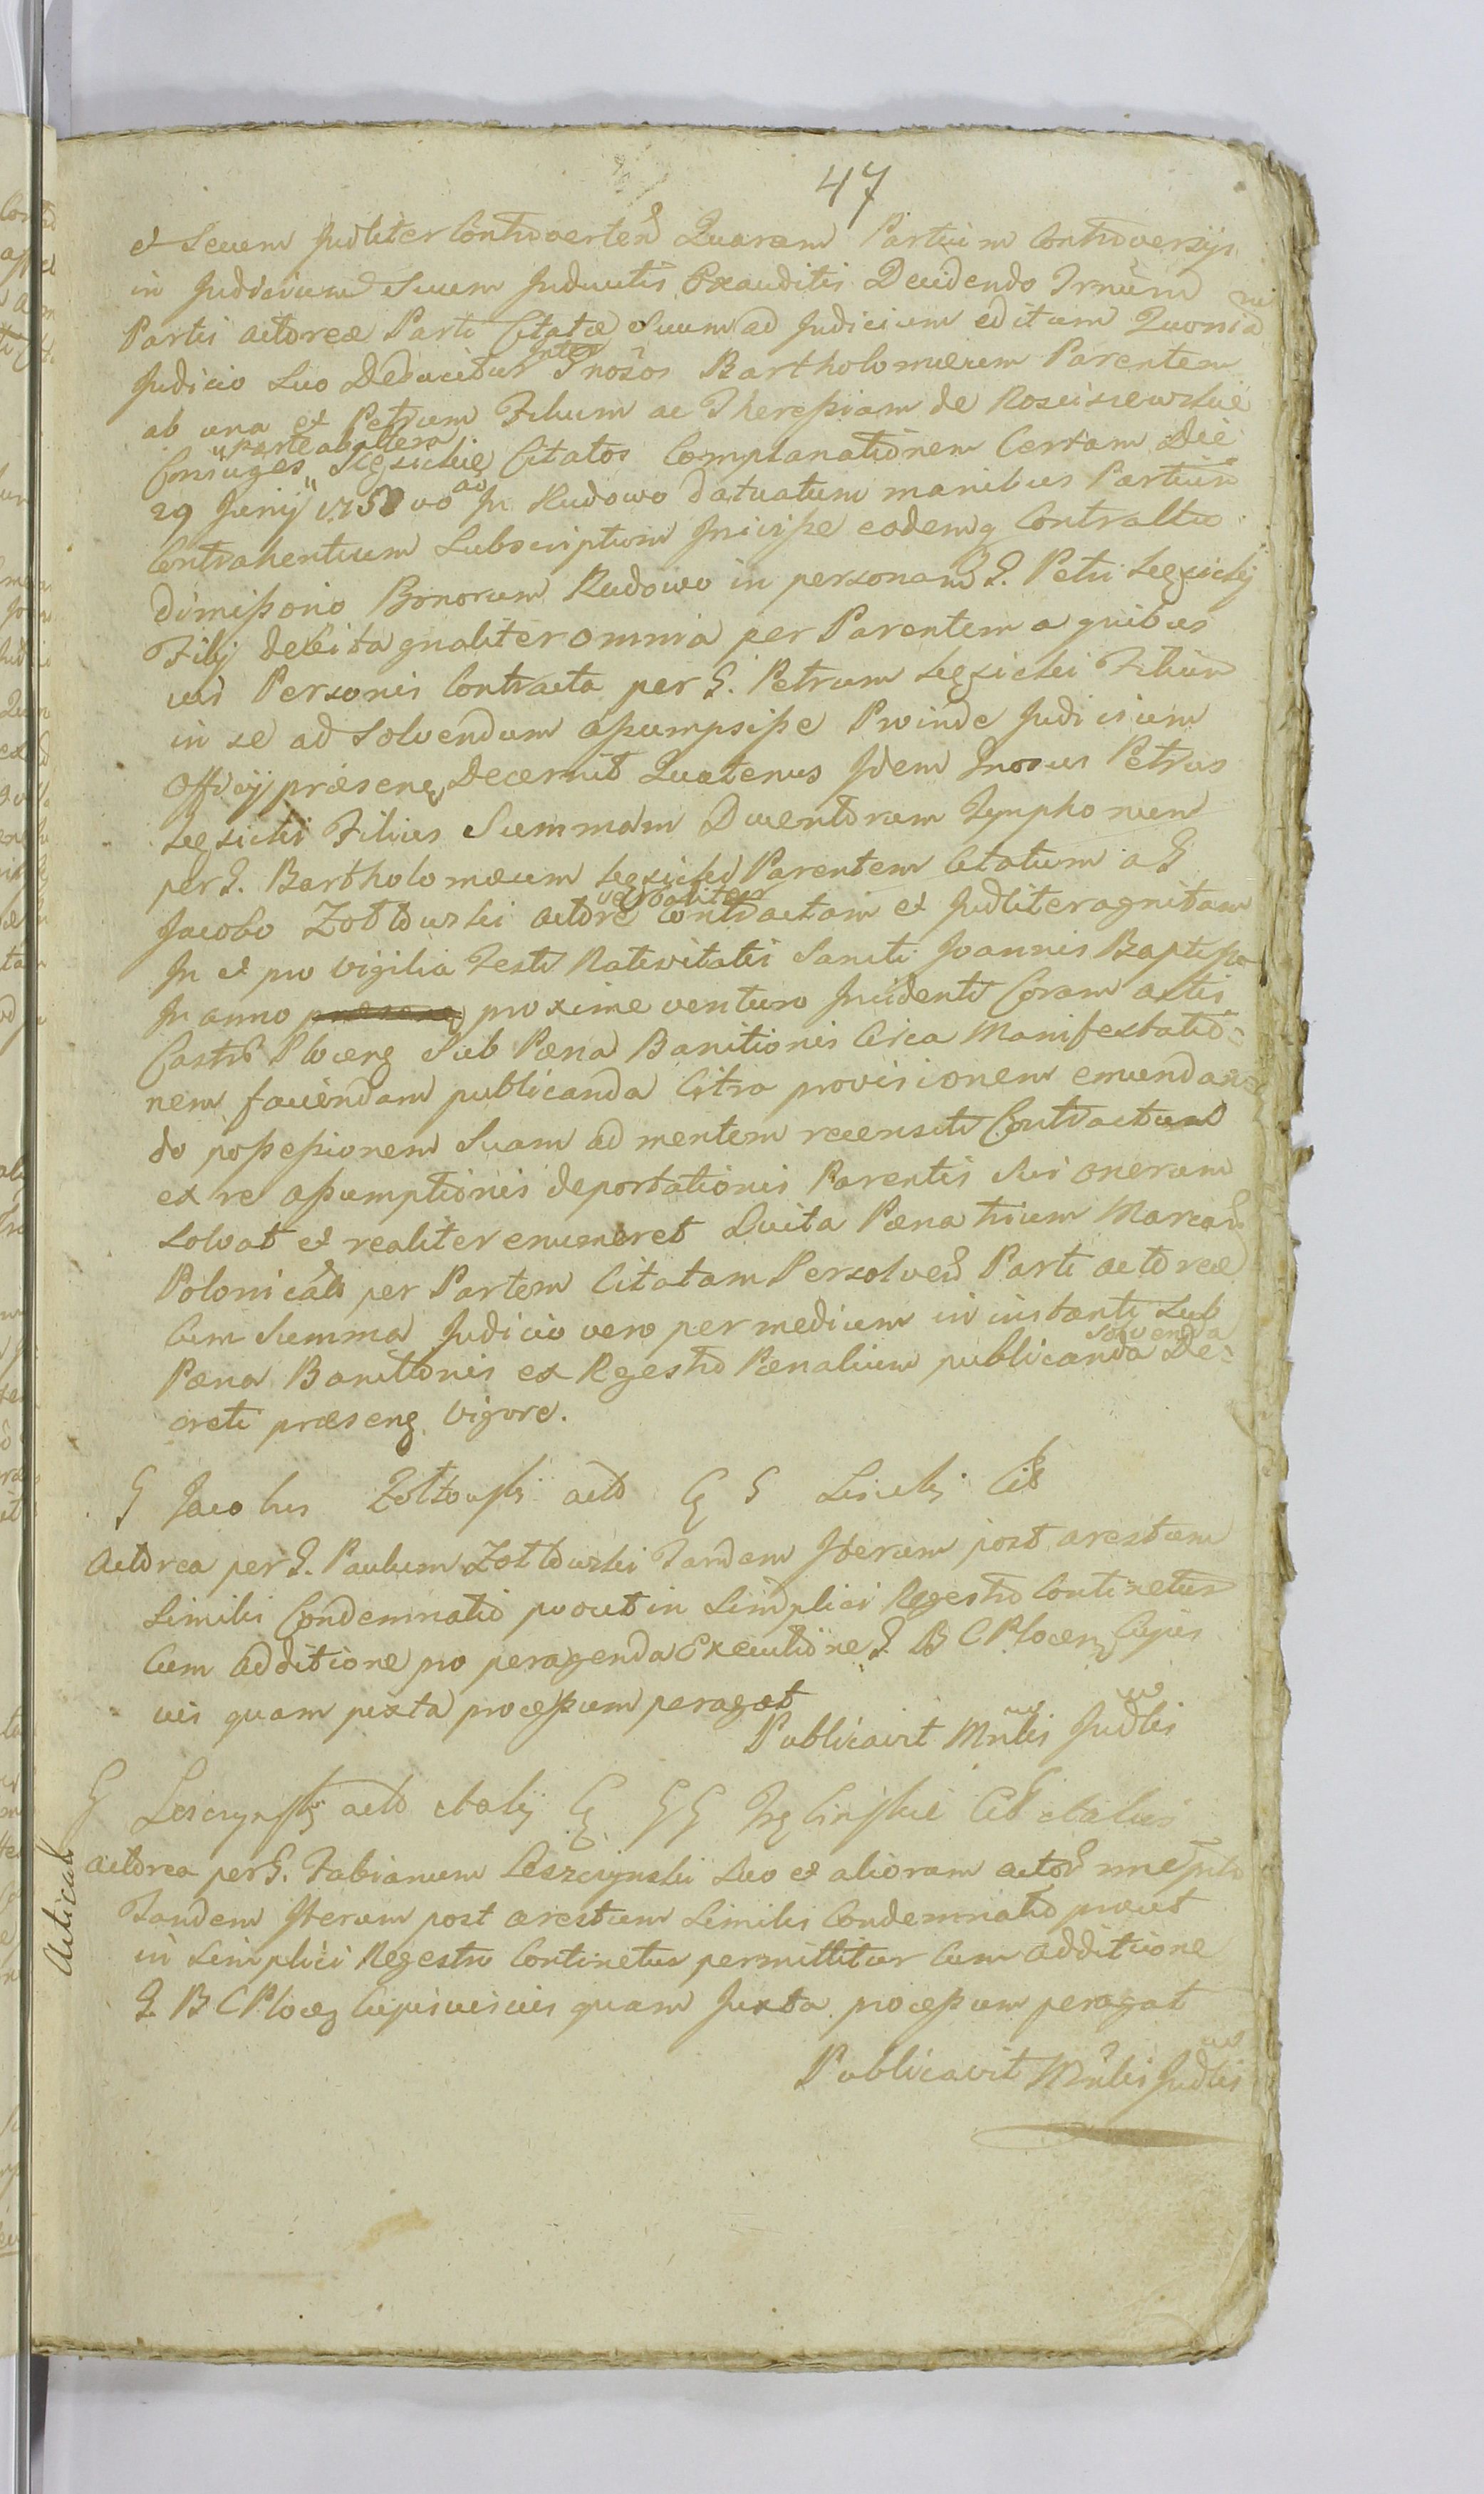 47
et Secum Judliter Controverten Quarum Partium Controversijs
in Judicium Suum Inductis Exauditis Decidendo Trnum
Partis actoreæ Parti Citatæ Suum ad Judicium editum Quonia
Judicio Suo Deducitur Inter Gnosos Bartholomæum Parentem
ab una et Petrum Filium ac Theressiam de Rosciszewskie
Coniuges parte ab altera Citatos Complanationem Certam Die
29 Junij 1758vo ao In Rudowo datuatum manibus Partium
Contrahentium Subscriptam Inivisse eodemq Contractu
dimissorio Bonorum Rudowo in personam G. Petri
Filij debita qualiter omnia per Parentem a quibus
vis Personis Contracta per G. Petrum Filium
in se ad Solvendum assumpsisse Proinde Judicium
Officij præsens Decernit Quatenus Idem Gnosus Petrus
Filius Summam Ducentorum Tympho rum
per G. Bartholomæum Parentem Citatum a G
Jacobo Zołtowski actore verbaliter Contractam et Judliter agnitam
In et pro Vigilia Festi Nativitatis Sancti Joannis Baptistæ
In anno proxime venturo Incidenti Coram actis
Castri Plocens Sub Pæna Banitionis Circa Manifestatio=
nem faciendam publicanda Citra provisionem emundan=
do possessionem Suam ad mentem recensiti Contractus
ex re assumptionis deportationis Parentis Sui onerum
Solvat et realiter enumeret Luita Pæna trium Marcar
Polonical per Partem Citatam Persolven Parti actoreæ
Cum Summa Judicio vero per medium in instanti Sub
Pæna Banitionis ex Regestro Pænalium publicanda solvenda De=
creti præsens Vigore.
G Jacobus Zołtowski acto Cq G Cit
Actorea per G. Paulum Zołtowski Tandem Iterum post arestum
Similis Condemnatio prout in Simplici Regestro Continetur
Cum additione pro peragenda Executione G. B C Plocen Cujus
vis quam juxta processum peragat
Publicavit Mnlis Judlis
G Lesczynski acto Cq GG Cit
Articul
Actorea per G. Fabianum Leszczynski Suo et aliorum acto
Tandem Iterum post arestum Similis Condemnatio prout
in Simplici Regestro Continetur permittitur Cum additione
G. B C Plocens Cujusvis vis quam Juxta processum peragat
Publicavit Mnlis Judlis